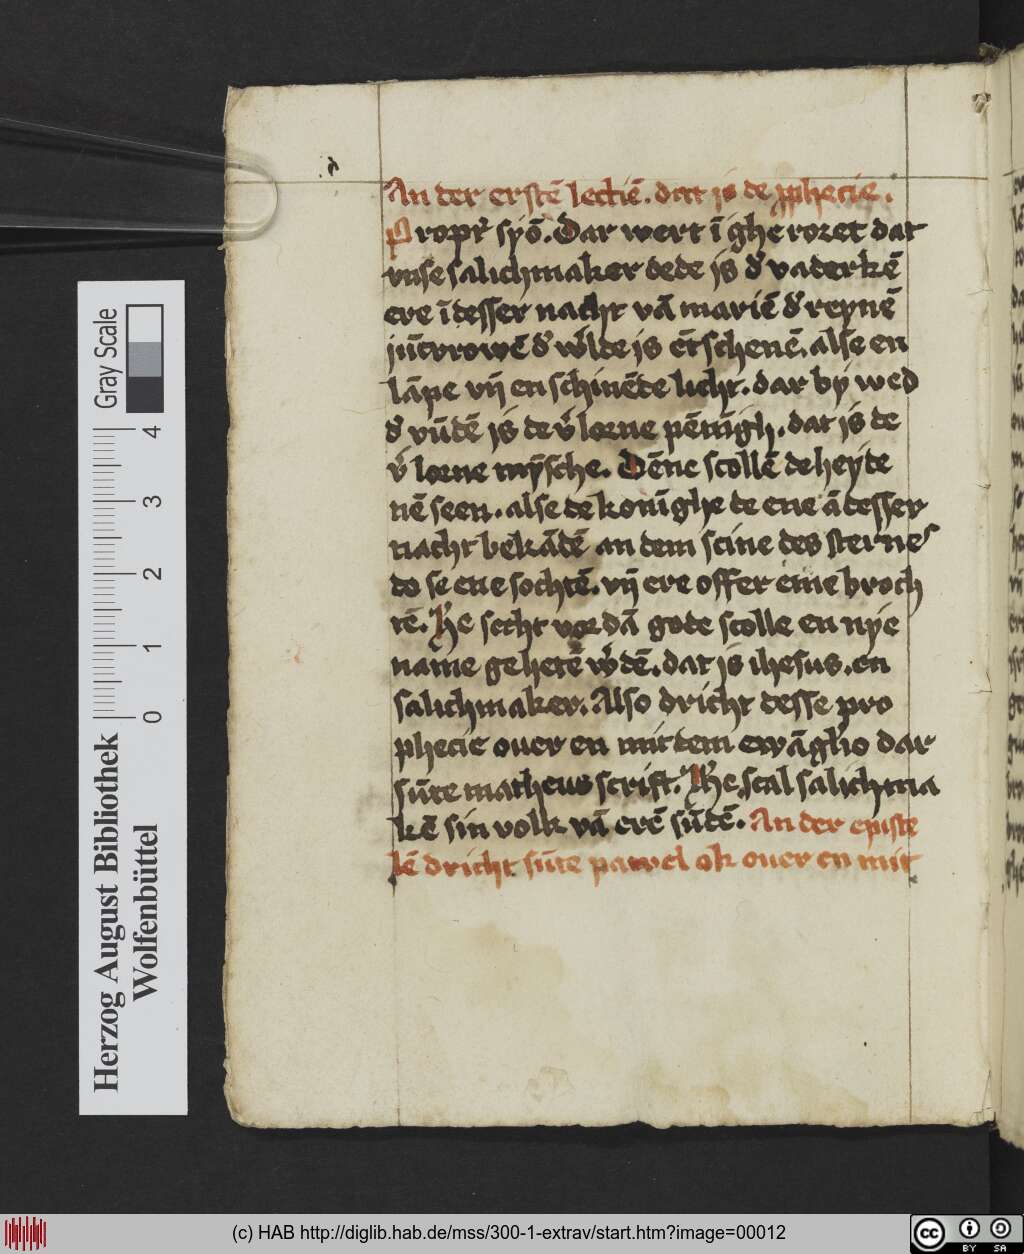 An der erstē lectiē. dat is de ꝓphecie.
Propt̄ syō. Dar wert ī ghe roret dat
vnse salichmaker dede is d̓ vaderkē
ere ī desser nacht vā mariē d̓ reynē
jūcvrowē d̓ w̓lde is ētschenē. alse en
lāpe vn̄ en schinēde licht. dar by wed
d̓ vūdē is de v̓lorne pēnīgh. dat is de
v̓lorne mȳsche. Dēne scollē de heyde
nē seen. alse de konīghe de ene ā desser
nacht bekādē an dem scine des sternes
do se ene sochtē. vn̄ ere offer eme broch
tē. He secht vordā gode scolle en nye
name ghehetē w̓dē. dat is ihesus. en
salichmaker. Also dricht desse pro
phecie ouer en mit dem ewāgl̓io dar
sūte matheus scrift. He scal salichma
kē sin volk vā erē sūdē. An der episte
lē dricht sūte pawel ok ouer en mit
Gray Scale
0 1 2 3 4
Herzog August Bibliothek
Wolfenbüttel
(c) HAB http://diglib.hab.de/mss/300-1-extrav/start.htm?image=00012
cc BY SA